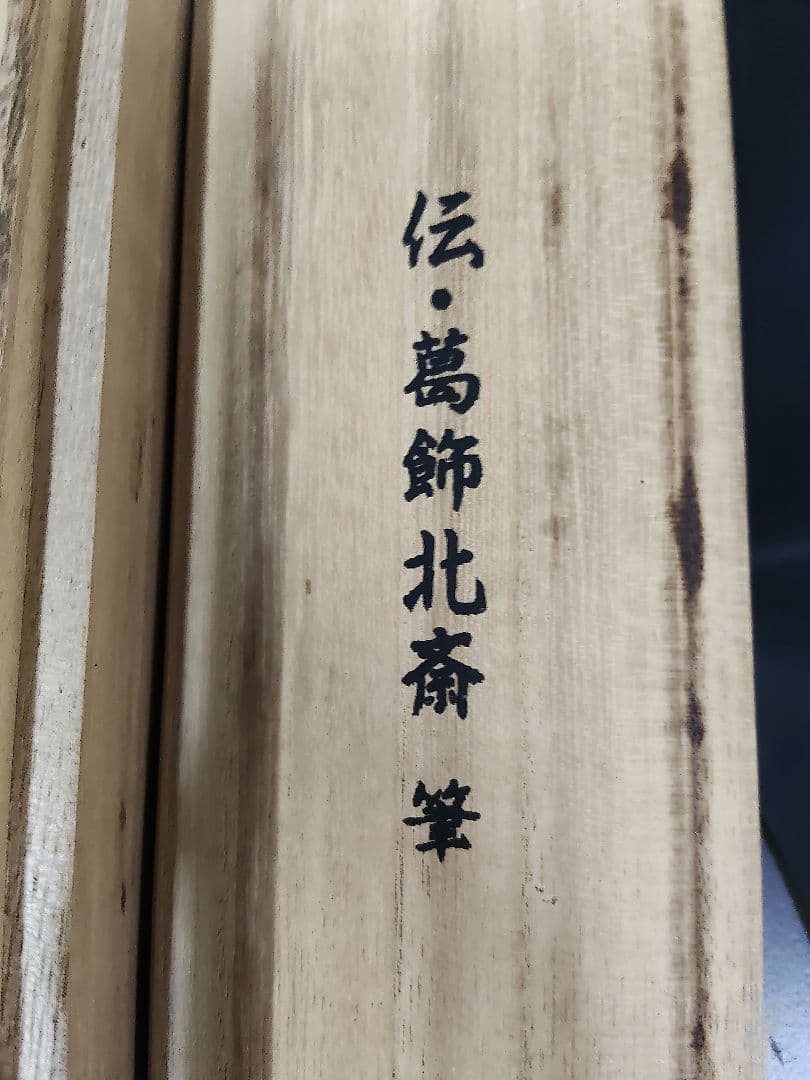 伝・葛飾北斎 筆